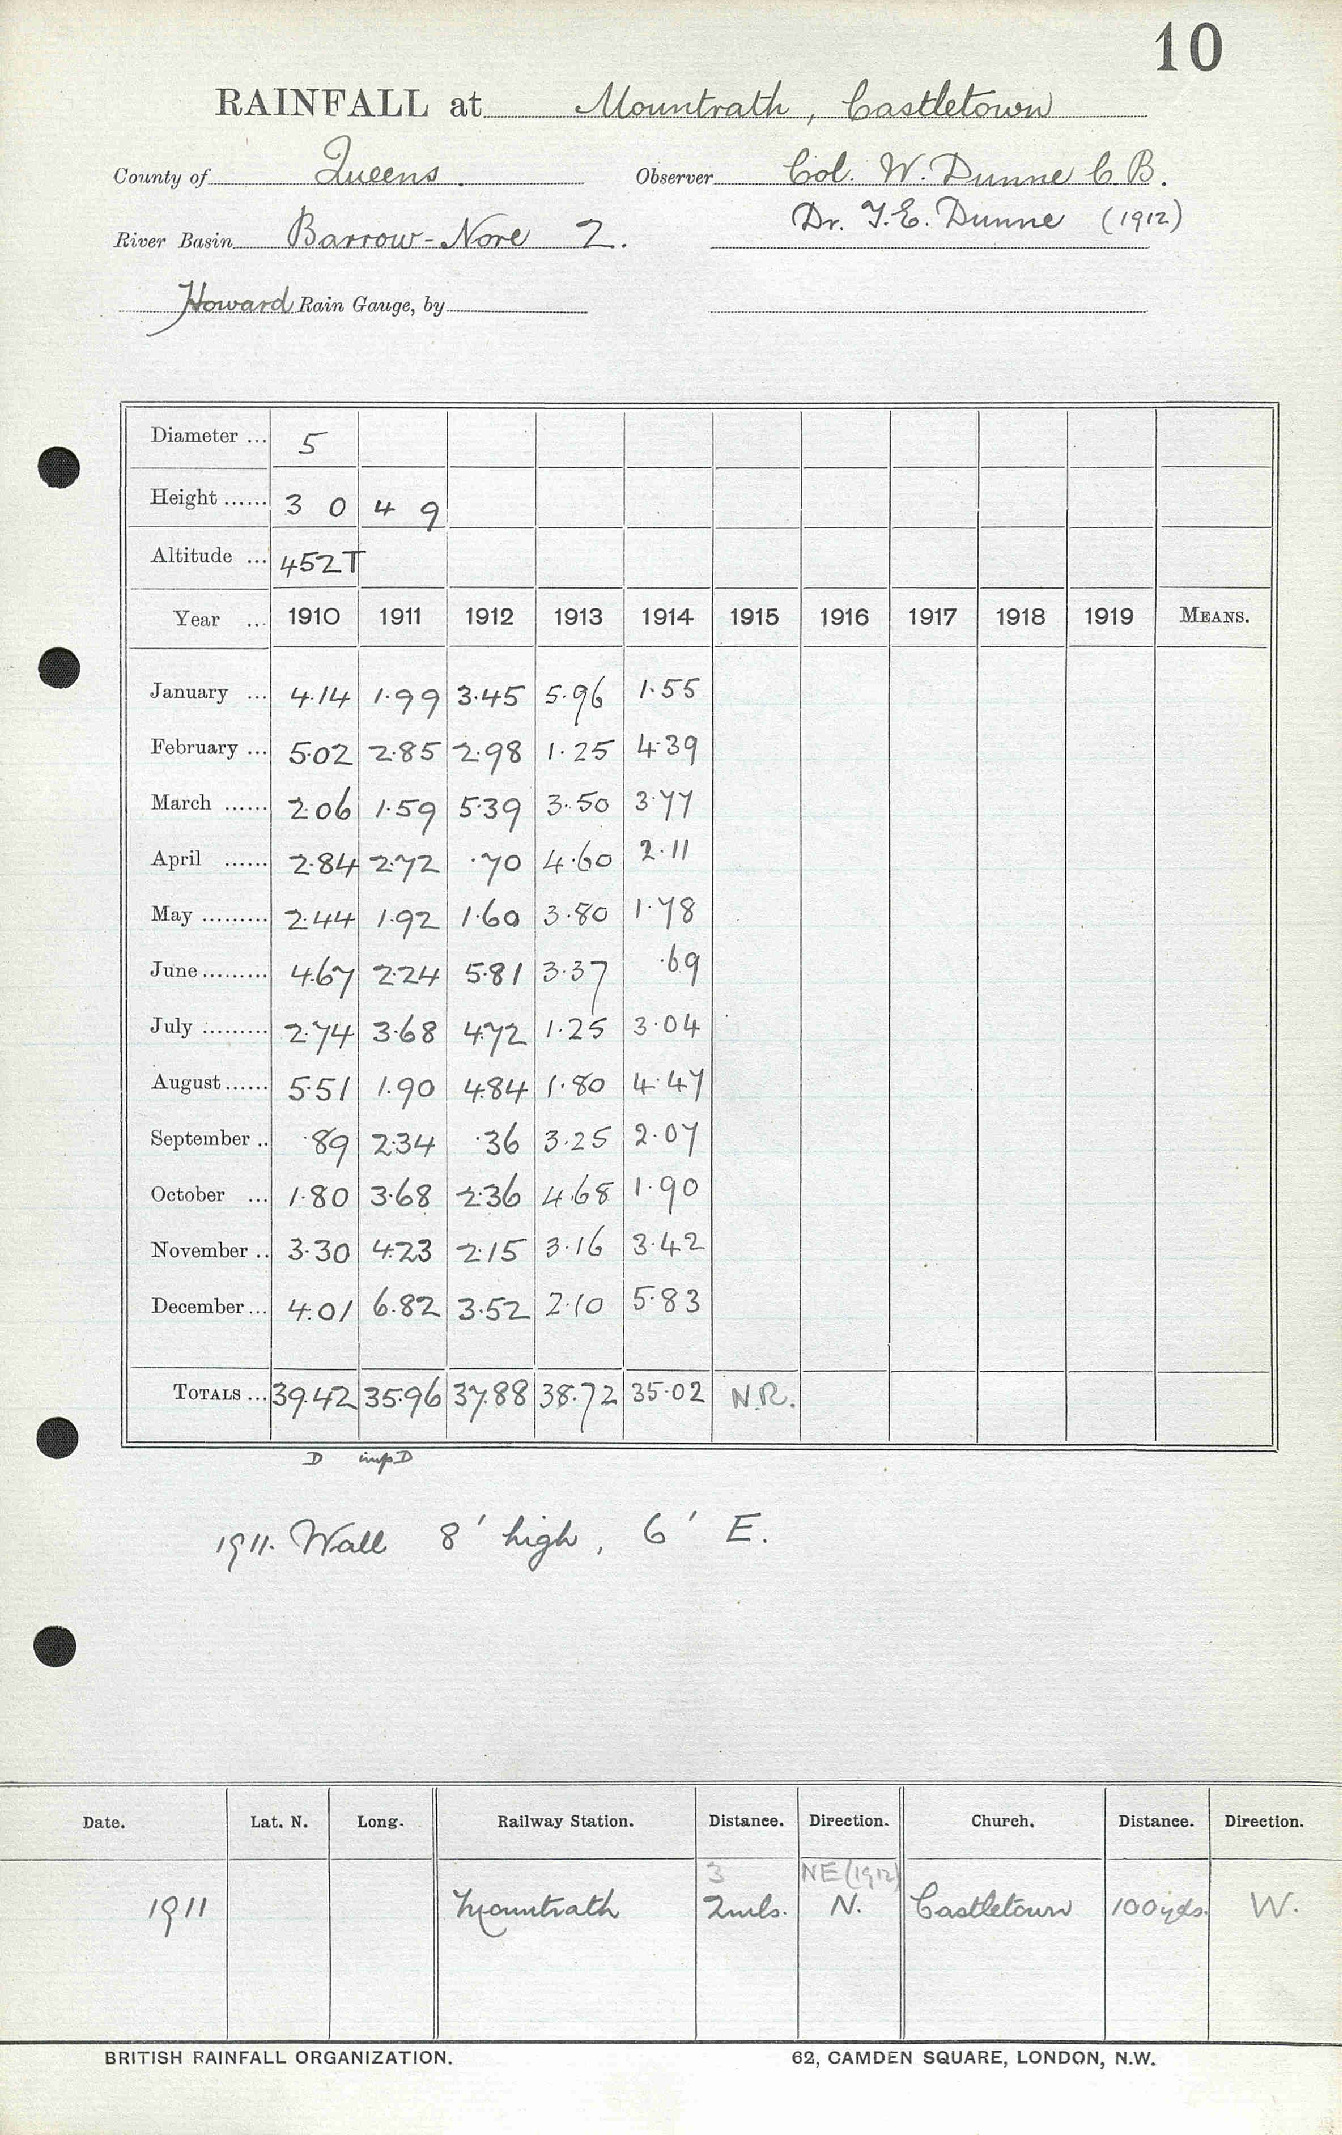 10
RAINFALL at Mountrath, Castletown
County of Queens. Observer Col. W. Dunne C.B.
Dr. T.E. Dunne (1912)
River Basin Barrow-Nore 2.
Howard Rain Gauge, by
Diameter ... 5
Height ...... 3 0 4 9
Altitude ... 452T
Year ... 1910 1911 1912 1913 1914 1915 1916 1917 1918 1919 MEANS.
January ... 4.14 1.99 3.45 5.96 1.55
February ... 5.02 2.85 2.98 1.25 4.39
March ...... 2.06 1.59 5.39 3.50 3.77
April ...... 2.84 2.72 .70 4.60 2.11
May ......... 2.44 1.92 1.60 3.80 1.78
June ......... 4.67 2.24 5.81 3.37 .69
July ......... 2.74 3.68 4.72 1.25 3.04
August ...... 5.51 1.90 4.84 1.80 4.47
September .. .89 2.34 .36 3.25 2.07
October ... 1.80 3.68 2.36 4.68 1.90
November .. 3.30 4.23 2.15 3.16 3.42
December ... 4.01 6.82 3.52 2.10 5.83
TOTALS ... 39.42 35.96 37.88 38.72 35.02 N.R.
D impD
1911. Wall 8' high, 6' E.
Date. Lat. N. Long. Railway Station. Distance. Direction. Church. Distance. Direction.
3 NE (1912)
1911 Mountrath 2mls. N. Castletown 100yds. W.
BRITISH RAINFALL ORGANIZATION. 62, CAMDEN SQUARE, LONDON, N.W.